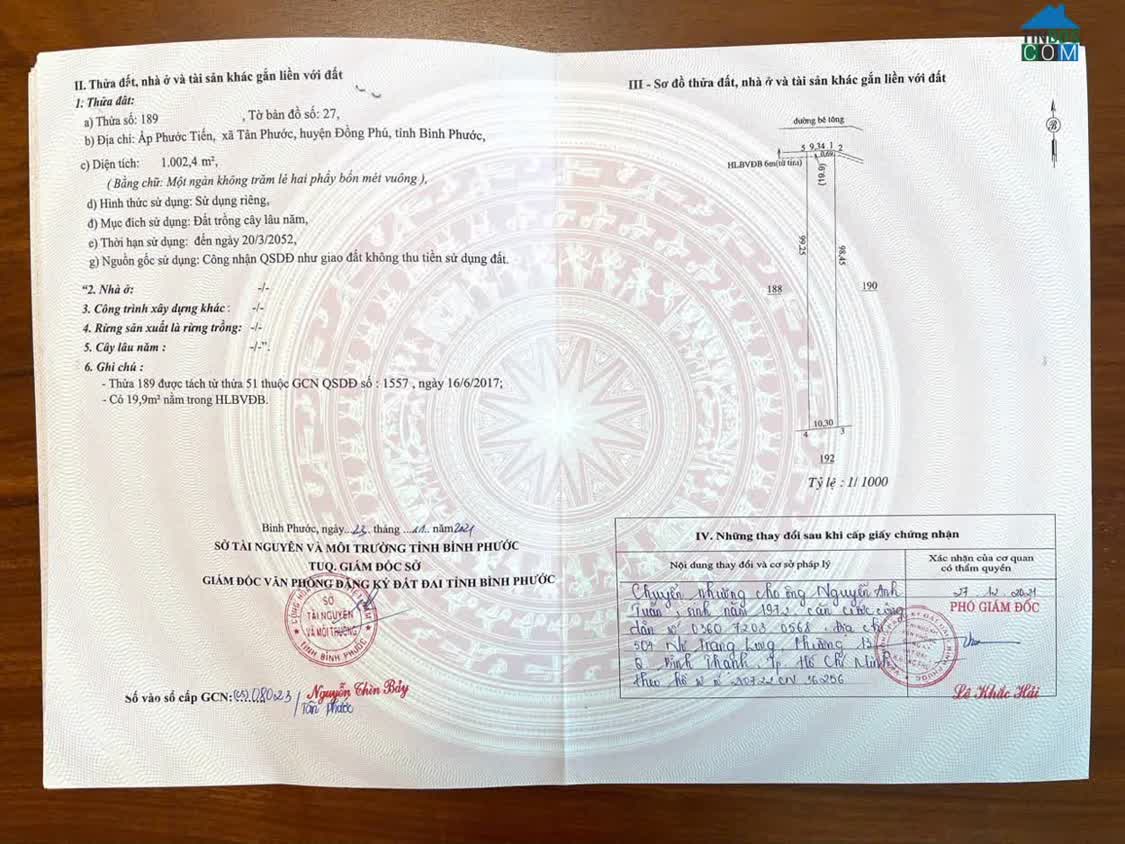 II. Thửa đất, nhà ở và tài sản khác gắn liền với đất
1: Thửa đất:
a) Thửa số: 189 , Tờ bản đồ số: 27,
b) Địa chỉ: Ấp Phước Tiến, xã Tân Phước, huyện Đồng Phú, tỉnh Bình Phước,
c) Diện tích: 1.002,4 m²,
( Bằng chữ: Một ngàn không trăm lẻ hai phẩy bốn mét vuông ),
d) Hình thức sử dụng: Sử dụng riêng,
đ) Mục đích sử dụng: Đất trồng cây lâu năm,
e) Thời hạn sử dụng: đến ngày 20/3/2052,
g) Nguồn gốc sử dụng: Công nhận QSDĐ như giao đất không thu tiền sử dụng đất.
“2. Nhà ở: -/-
3. Công trình xây dựng khác : -/-
4. Rừng sản xuất là rừng trồng: -/-
5. Cây lâu năm : -/-”.
6. Ghi chú :
- Thửa 189 được tách từ thửa 51 thuộc GCN QSDĐ số : 1557 , ngày 16/6/2017;
- Có 19,9m² nằm trong HLBVĐB.
Bình Phước, ngày...23. tháng ....11.. năm2021
SỞ TÀI NGUYÊN VÀ MÔI TRƯỜNG TỈNH BÌNH PHƯỚC
TUQ. GIÁM ĐỐC SỞ
GIÁM ĐỐC VĂN PHÒNG ĐĂNG KÝ ĐẤT ĐAI TỈNH BÌNH PHƯỚC
SỞ
TÀI NGUYÊN
VÀ MÔI TRƯỜNG
TỈNH BÌNH PHƯỚC
Nguyễn Thìn Bảy
Số vào sổ cấp GCN: (CS).08023/
Tân Phước
TINBDS
COM
III - Sơ đồ thửa đất, nhà ở và tài sản khác gắn liền với đất
đường bê tông
B
5 9,34 1 2
0,69
HLBVĐB 6m(từ tim)
(19,9)
99,25
98,45
188
190
10,30
4 3
192
Tỷ lệ : 1/ 1000
IV. Những thay đổi sau khi cấp giấy chứng nhận
Nội dung thay đổi và cơ sở pháp lý
Xác nhận của cơ quan
có thẩm quyền
Chuyển nhượng cho ông Nguyễn Anh
Tuấn, sinh năm 1972, căn cước công
dân số 0360 7203 0568. Địa chỉ
Nơ Trang Long, Phường 13
Q. Bình Thạnh Tp Hồ Chí Minh
theo hồ sơ số
27 12 2021
PHÓ GIÁM ĐỐC
Lê Khắc Hải